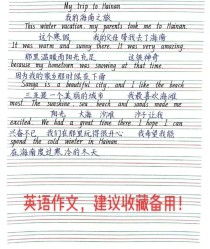 My trip to Hainan
我的海南之旅
This winter vacation, my parents took me to Hainan.
这个寒假 我的父母带我去了海南
It was warm and sunny there. It was very amazing,
那里温暖而阳光充足 这很神奇
because my hometown was snowing at that time.
因为我的家乡那时候在下雪
Sanya is a beautiful city, and I like the beach
三亚是一个美丽的城市 我最喜欢海滩
most. The sunshine, sea beach and sands made me
阳光 大海 沙滩 沙子让我
excited. We had a great time there. I hope I can
兴奋不已 我们在那里玩得很开心 我希望我能
spend the cold winter in Hainan.
在海南度过寒冷的冬天
英语作文，建议收藏备用！